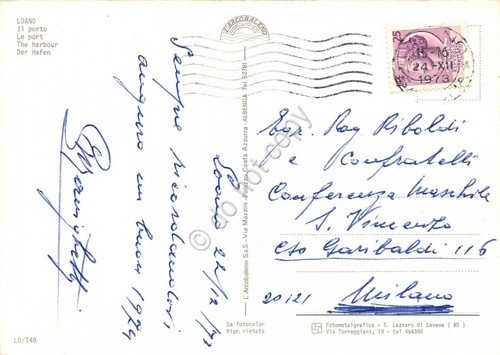 LOANO
Il porto
Le port
The harbour
Der Hafen
L'ARCOBALENO
25
15-16
24-XII
1973
Loano 22/12/73
Sempre ricordandovi
auguro un buon 1974
L'Arcobaleno S.a.S. Via Manzoni Palazzo Costa Azzurra - ALBENGA Tel. 52781
Egr. Rag Riboldi
e Confratelli
Conferenza Maschile
S. Vincenzo
Cso Garibaldi 116
20121 Milano
do not copy
LO/148
Da fotocolor
Ripr. vietata
Fotometalgrafica - S. Lazzaro di Savena ( BO )
Via Torreggiani, 19 - tel 464368